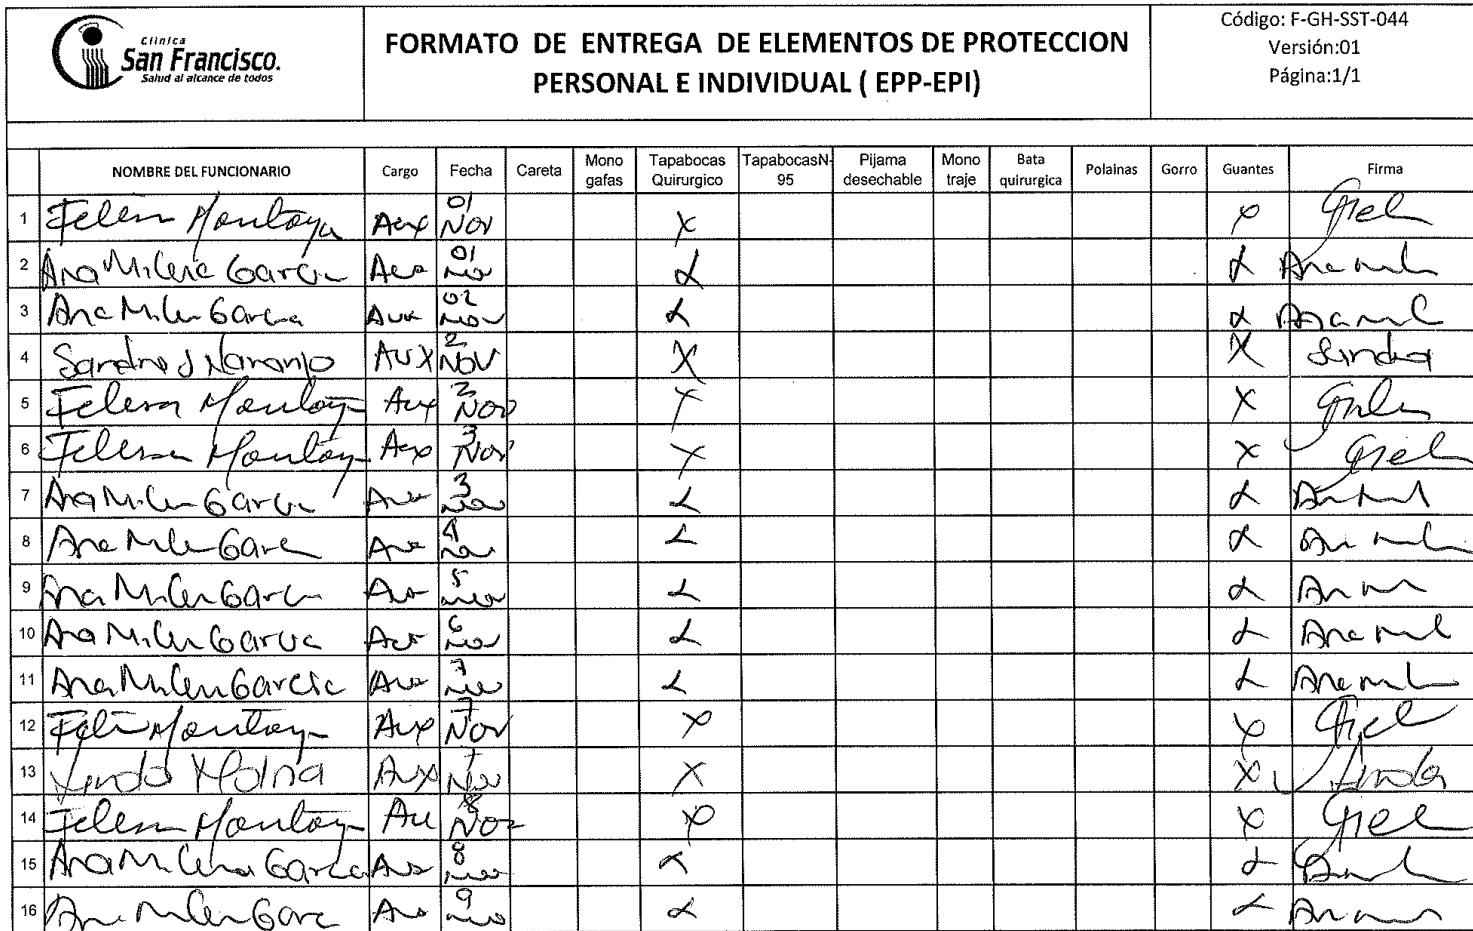 Clínica
San Francisco.
Salud al alcance de todos
FORMATO DE ENTREGA DE ELEMENTOS DE PROTECCION
PERSONAL E INDIVIDUAL ( EPP-EPI)
Código: F-GH-SST-044
Versión:01
Página:1/1
NOMBRE DEL FUNCIONARIO Cargo Fecha Careta Mono gafas Tapabocas Quirurgico TapabocasN-95 Pijama desechable Mono traje Bata quirurgica Polainas Gorro Guantes Firma
1 Montoya Aux 01 Nov X X
2 Ana Milena Garcia Aux 01 Nov X X Ana mil
3 Ana Milen Garcia Aux 02 Nov X X Ana mil
4 Sandra J Naranjo AUX 2 NOV X X Sandra
5 Montoya Aux 2 Nov X X
6 Montoya Aux 3 Nov X X
7 Ana Milen Garcia Aux 3 Nov X X
8 Ana Milen Garc Aux 4 Nov X X
9 Ana Milen Garc Aux 5 Nov X X
10 Ana Milen Garcia Aux 6 Nov X X Ana mil
11 Ana Milen Garcia Aux 7 Nov X X Ana mil
12 Montoya Aux 7 Nov X X
13 Aux 7 Nov X X
14 Montoya Au 8 Nov X X
15 Ana Milena Garcia Aux 8 Nov X X
16 Ana Milen Garc Aux 9 Nov X X